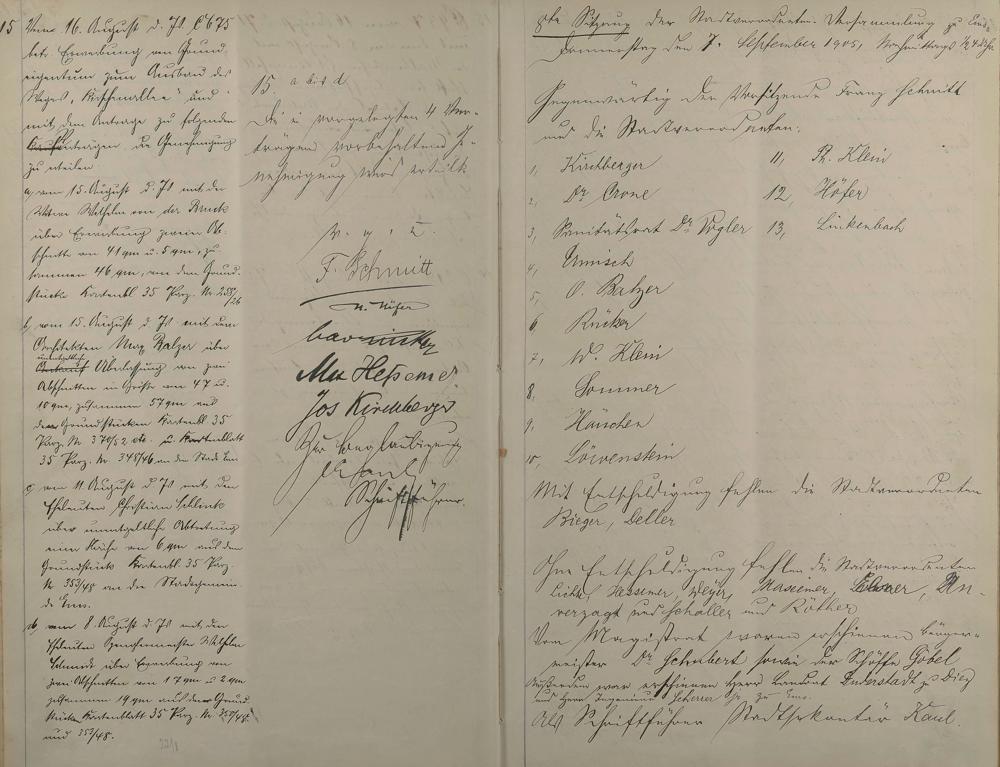 15 Vom 16. August d. Js C 675
betr. Erwerbung von Grund-
eigentum zum Ausbau des
Weges, "Kirschenallee" und
mit dem Antrage zu folgenden
die Genehmigung
zu erteilen
a, vom 15. August d. Js mit der
Witwe Wilhelm von der Bruck
über Erwerbung zweier Ab-
schnitte von 41 qm u. 5 qm, zu-
sammen 46 qm, von dem Grund-
stücke Kartenbl 35 Parz. Nr. 258/26
b, vom 15. August d. Js mit dem
Architekten Max Balzer über
unentgeltliche
Überlassung von zwei
Abschnitten in Größe von 47 u.
10 qm, zusammen 57 qm aus
den Grundstücken Kartenbl 35
Parz. Nr 370/52 etc. u. Kartenblatt
35 Parz. Nr 348/46 an die Stadt Ems
c, vom 11 August d. Js mit den
Eheleuten Christian Schlink
über unentgeltliche Abtretung
einer Fläche von 6 qm aus dem
Grundstück Kartenbl. 35 Parz.
Nr 353/48 an die Stadtgemein-
de Ems.
d, vom 8. August d. Js mit den
Eheleuten Wilhelm
Schmidt über Erwerbung von
zwei Abschnitten von 17 qm u. 2 qm
zusammen 19 qm aus dem Grund
stücke Kartenblatt 35 Parz. Nr. 357/48
und 353/48.
15. a bis d
Die vorgelegten 4 Ver-
trägen vorbehaltene Ge-
nehmigung wird erteilt
v. g. u.
F. Schmitt
Max Heßemer
Jos Kirchberger
Zur Beglaubigung
Kaul
Schriftführer.
Sitzung der Stadtverordneten-Versammlung zu Ems
Donnerstag den 7. September 1905, Nachmittags 1/2 4 Uhr
Gegenwärtig der Vorsitzende Franz Schmitt
und die Stadtverordneten.
1, Kirchberger
2, Dr Crone
3, Sanitätsrat Dr Vogler
4, Unnisch
5, O. Balzer
6, Rücker
7, W. Klein
8, Sommer
9, Häuschen
10, Löwenstein
11, Th. Klein
12, Höfer
13, Linkenbach
Mit Entschuldigung fehlen die Stadtverordneten
Bieger, Deller
Ohne Entschuldigung fehlen die Stadtverordneten
Licht, Hessemer, Meyer, Un-
verzagt und Schaller und Röther
Vom Magistrat waren erschienen Bürger-
meister Dr. Schubert sowie der Schöffe Göbel
Außerdem war erschienen Herr Landrat Duderstadt zu Diez
und Herr Ingenieur Scherrer zu Ems.
Als Schriftführer Stadtsekretär Kaul.